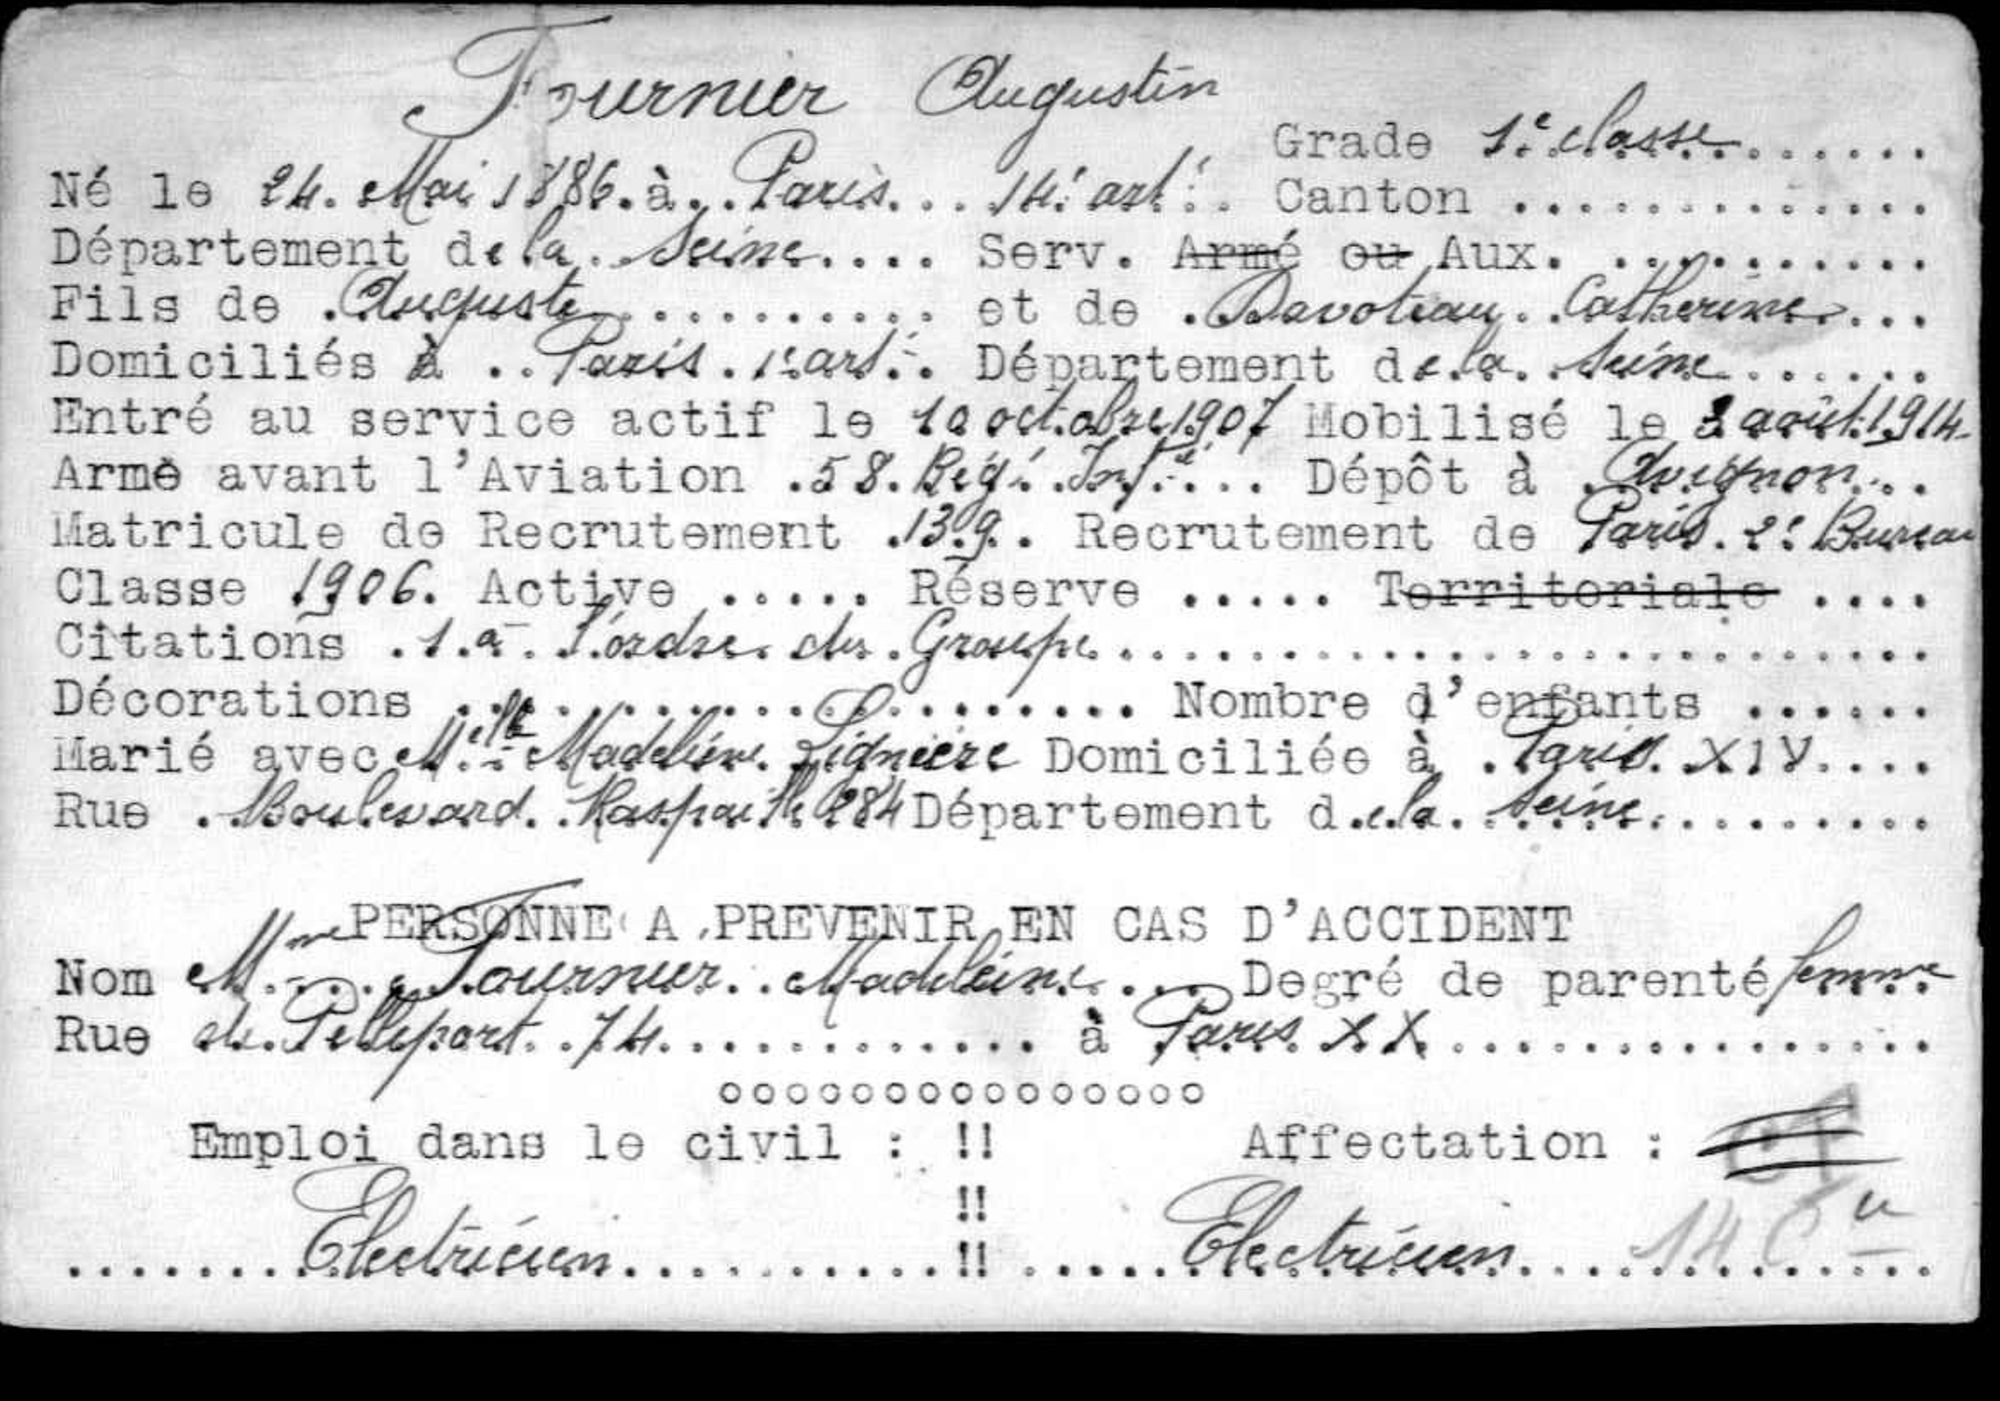 Fournier Augustin
Grade 1e classe
Né le 24 Mai 1886 à Paris 14e arrt Canton
Département de la Seine Serv. Armé ou Aux.
Fils de Auguste et de Davoteau Catherine
Domiciliés à Paris 1e arrt Département de la Seine
Entré au service actif le 10 octobre 1907 Mobilisé le 2 août 1914
Arme avant l'Aviation 58 Régt Infie Dépôt à Avignon
Matricule de Recrutement 139 Recrutement de Paris 2e Bureau
Classe 1906. Active Réserve Territoriale
Citations 1 à l'ordre du Groupe
Décorations Nombre d'enfants
Marié avec Melle Madeleine Lignière Domiciliée à Paris XIV
Rue Boulevard Raspail 284 Département de la Seine
PERSONNE A PREVENIR EN CAS D'ACCIDENT
Nom Mme Fournier Madeleine Degré de parenté femme
Rue de Pelleport 74 à Paris XX
oooooooooooooooo
Emploi dans le civil : !! Affectation :
!!
Electricien !! Electricien 14